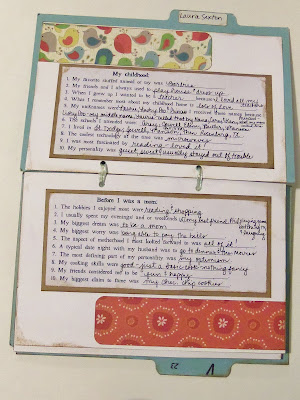 Laura Saxton
My childhood
1. My favorite stuffed animal or toy was Barbies
2. My friends and I always used to play house & dress up
3. When I grew up I wanted to be a teacher because I loved all my teachers
4. What I remember most about my childhood home is lots of love
5. My nickname was because
6. The schools I attended were
7. I lived in St. Dodge, Jewell,
8. The coolest technology of the time was
9. I was most fascinated by reading - loved it!
10. My personality was quiet, sweet & usually stayed out of trouble
Before I was a mom
1. The hobbies I enjoyed most were reading & shopping
2. I usually spent my evenings and/or weekends
3. My biggest dream was to be a mom
4. My biggest worry was being able to pay the bills
5. The aspect of motherhood I most looked forward to was all of it
6. A typical date night with my husband was to go to dinner & the movies
7. The most defining part of my personality was my optimism
8. My cooking skills were good - just a basic cook - nothing fancy
9. My friends considered me to be fun & happy
10. My biggest claim to fame was my choc. chip cookies
V
22